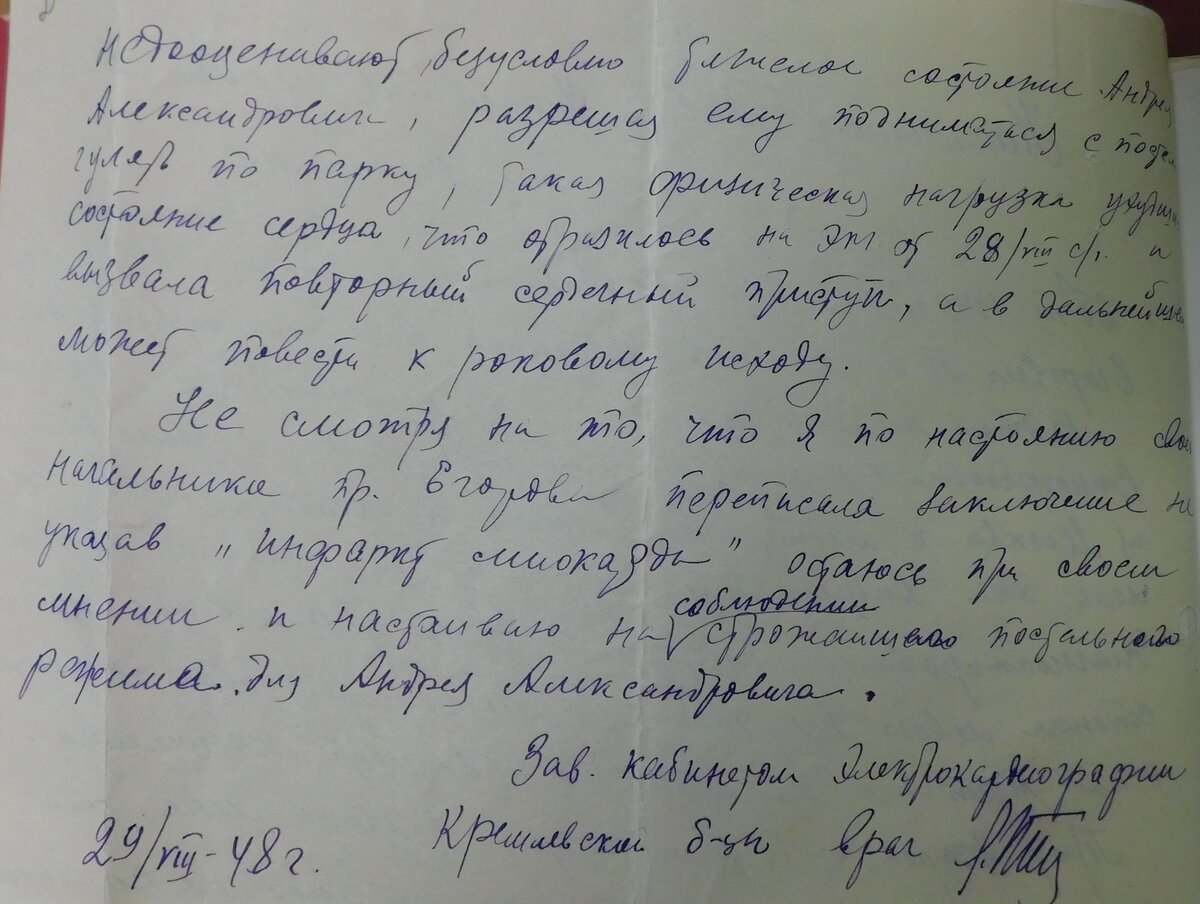 недооценивают, безусловно тяжелое состояние Андрея
Александровича, разрешая ему подниматься с посте
гулять по парку, такая физическая нагрузка ухудши
состояние сердца, что отразилось на ЭКГ от 28/VIII с/г. и
вызвала повторный сердечный приступ, а в дальнейше
может повести к роковому исходу.
Не смотря на то, что я по настоянию свое
начальника пр. Егорова переписала заключение не
указав „инфаркт миокарда" остаюсь при своем
мнении и настаиваю на соблюдении строжайшего постельного
режима для Андрея Александровича.
Зав. кабинетом Электрокардиографии
29/VIII-48 г. Кремлевской б-цы врач